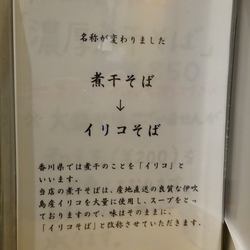 名称が変わりました
煮干そば
↓
イリコそば
香川県では煮干のことを「イリコ」と
いいます。
当店の煮干そばは、産地直送の良質な伊吹
島産イリコを大量に使用し、スープをとっ
ておりますので、味はそのままに、
「イリコそば」と改称させていただきます。